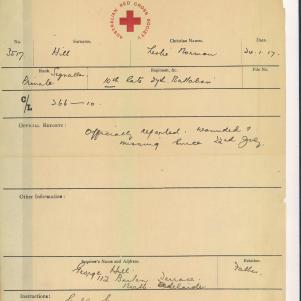 AUSTRALIAN RED CROSS SOCIETY
No. Surname. Christian Names. Date.
3517 Hill Leslie Norman 24.1.17.
Rank. Regiment, &c. File No.
Signaller
Private 10th late 27th Battalion
C/L 266-10.
OFFICIAL REPORTS:
Officially reported. wounded &
missing since 22nd July.
Other Information:
Inquirer's Name and Address. Relation.
George Hill. Father.
112 Barton Terrace.
North Adelaide
Instructions: